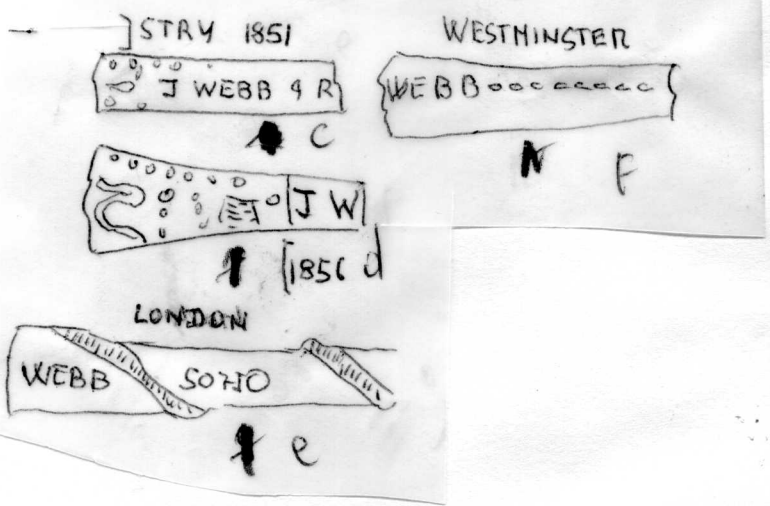 ]STRY 1851
J WEBB & R
C
J W
[1856 d
LONDON
WEBB SOHO
e
WESTMINSTER
WEBB
N F